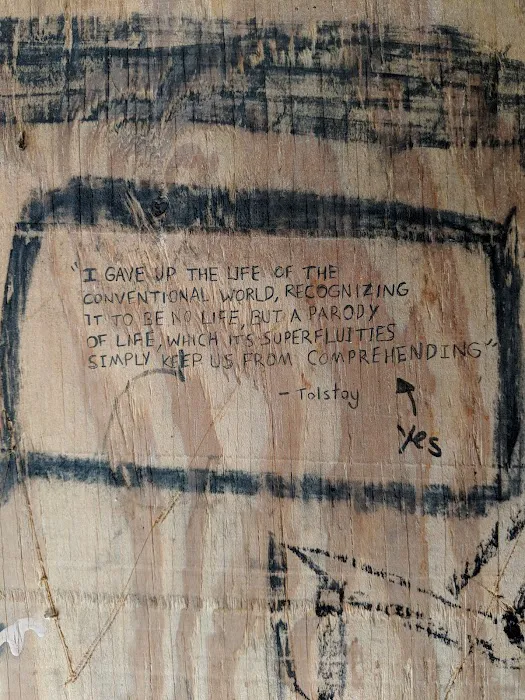 "I GAVE UP THE LIFE OF THE
CONVENTIONAL WORLD, RECOGNIZING
IT TO BE NO LIFE, BUT A PARODY
OF LIFE, WHICH IT'S SUPERFLUITIES
SIMPLY KEEP US FROM COMPREHENDING"
- Tolstoy
yes